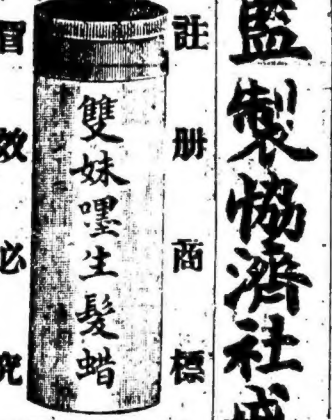 監製恊濟社
註册商標
雙妹嚜生髮蜡
冒效必究